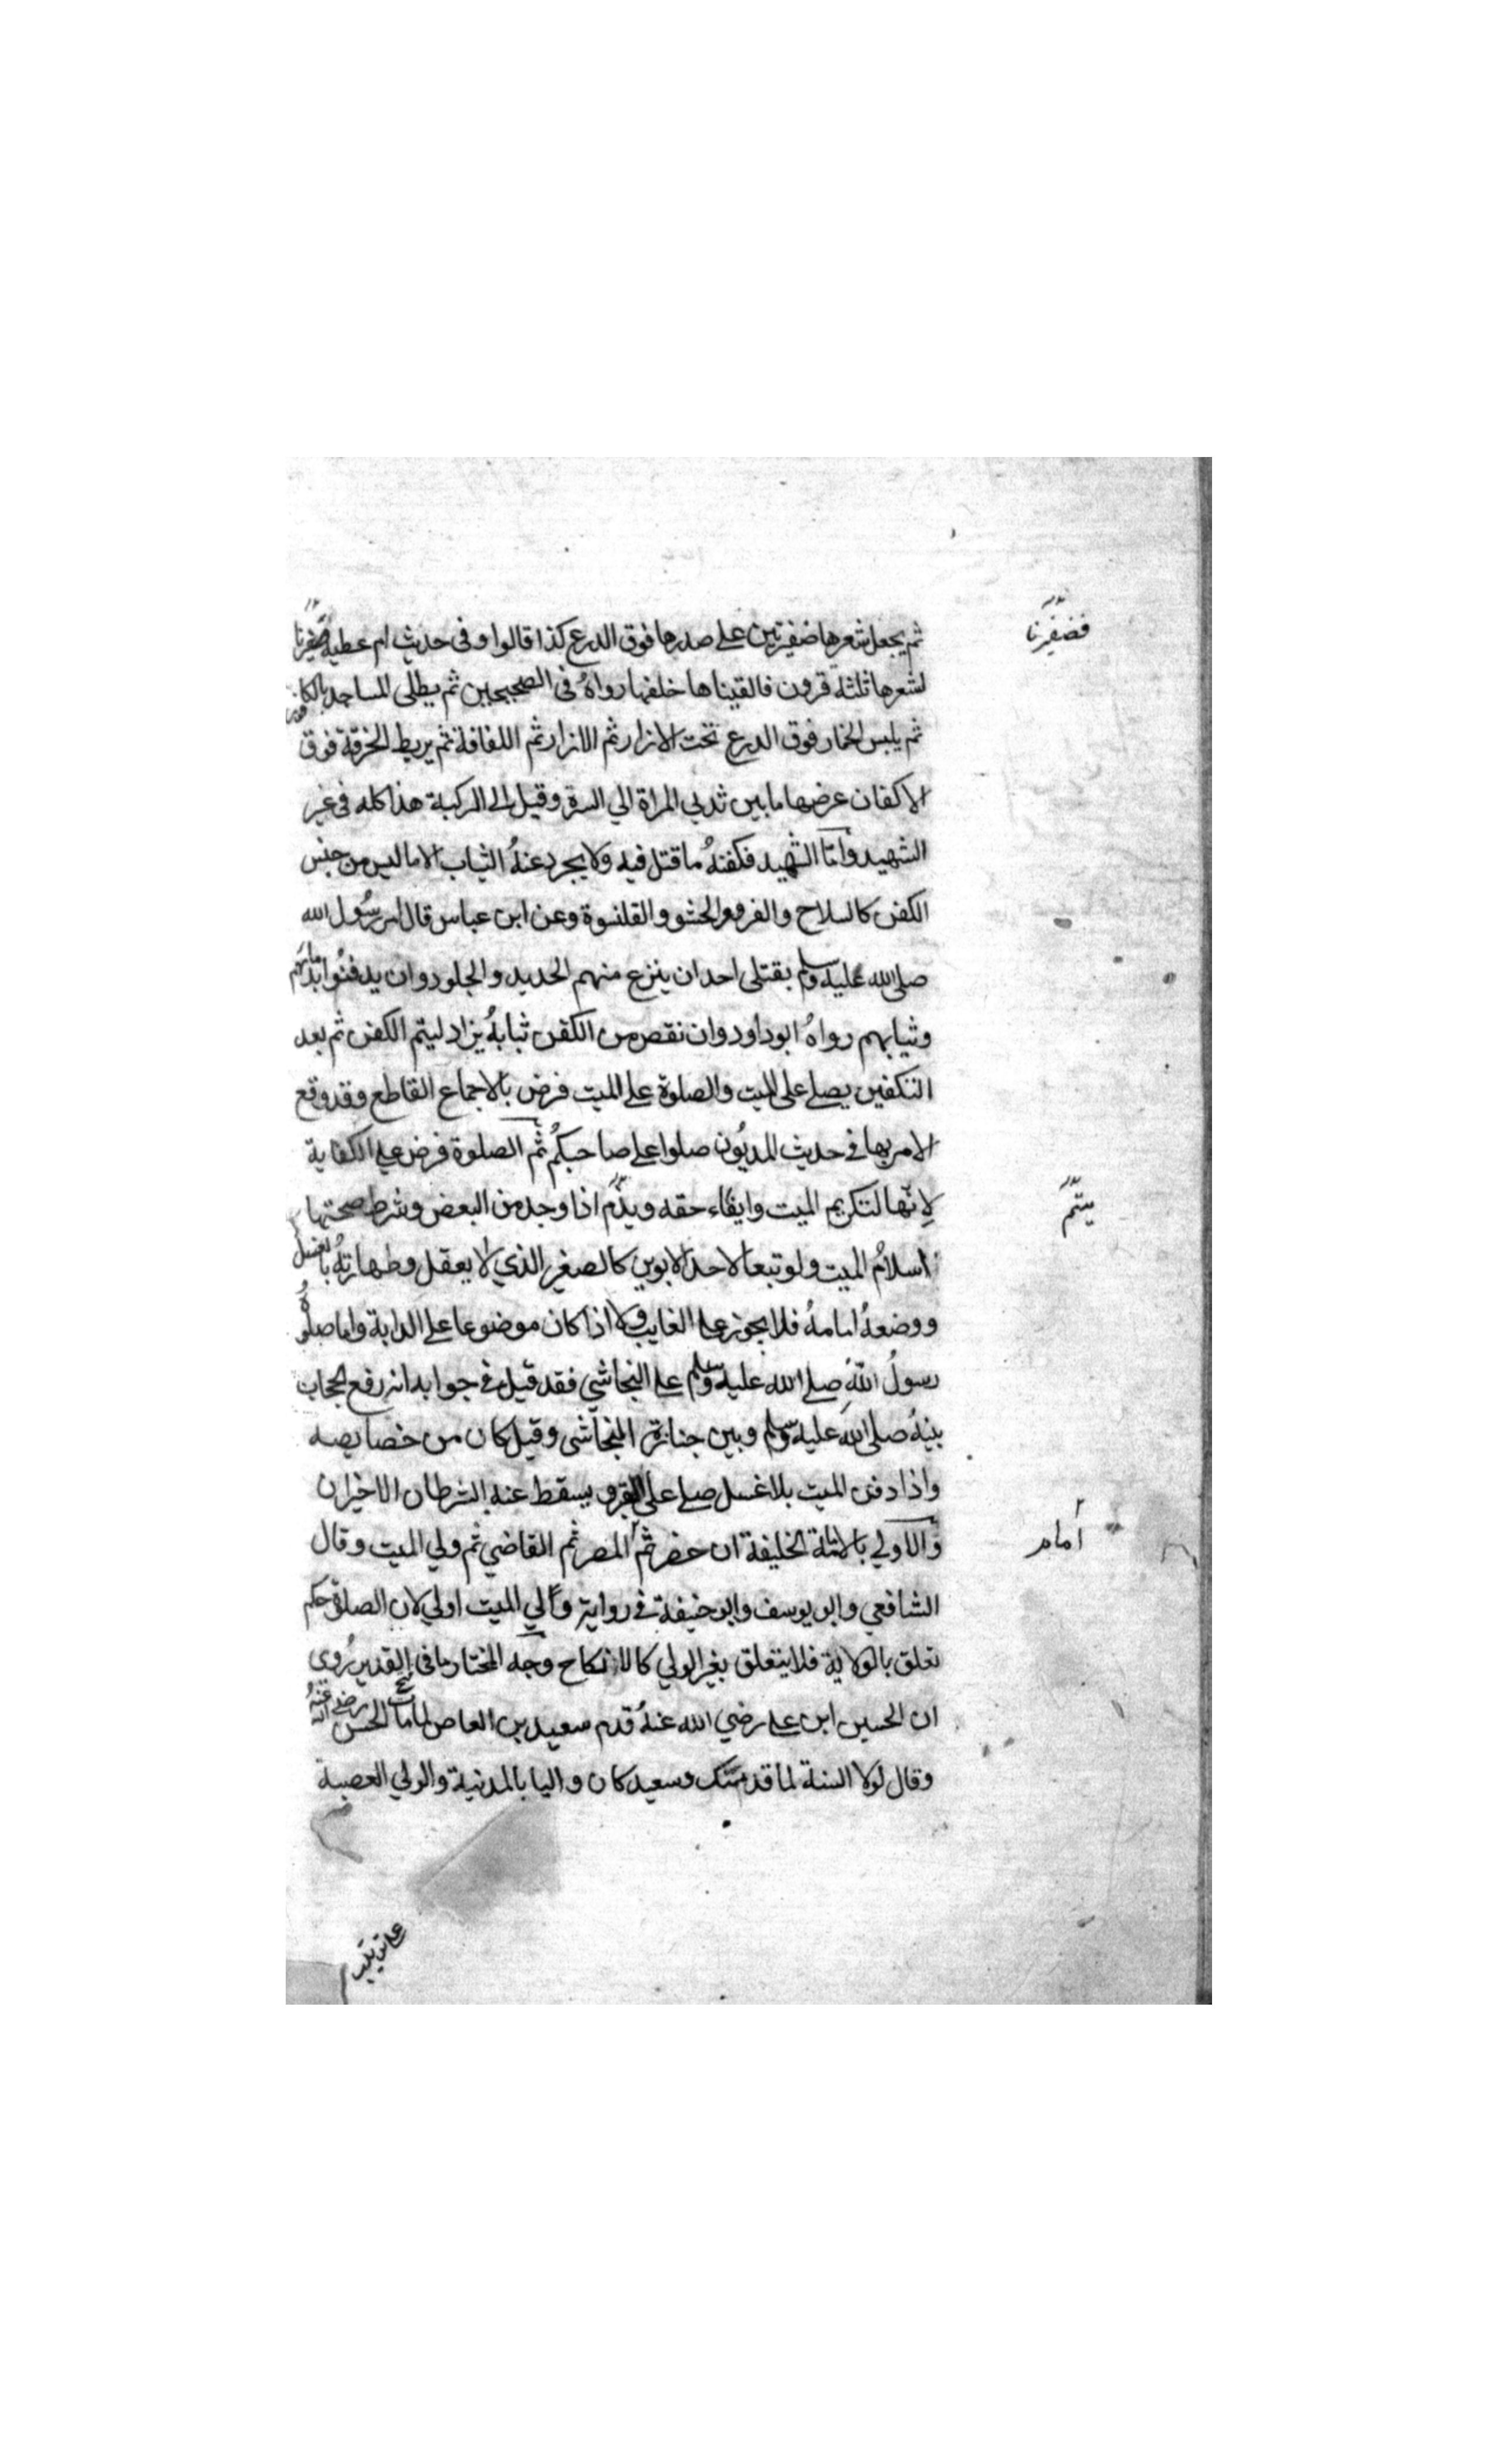 ثم يجعل شعرها ضفيرتين على صدرها فوق الدرع كذا قالوا وفى حديث ام عطية فضفرنا
فضفرنا
لشعرها ثلثة قرون فالقيناها خلفها رواهُ فى الصحيحين ثم يطلى المساجد بالكافور
ثم يلبس الخمار فوق الدرع تحت الازار ثم الازار ثم اللفافة ثم يربط الخرقة فوق
الاكفان عرضها ما بين ثديي المراة الي السرة وقيل الى الركبة هذا كله فى غير
الشهيد وامّا الشهيد فكفنهُ ما قتل فيه ولا يجرد عنهُ الثياب الا ما ليس من جنس
الكفن كالسلاح والفرو والحشو والقلنسوة وعن ابن عباس قال امر رسُول الله
صلى الله عليه وسلم بقتلى احد ان ينزع منهم الحديد والجلود وان يدفنُوا بدمائهم
وثيابهم رواهُ ابو داود وان نقص من الكفن ثيابهُ يزاد ليتم الكفن ثم بعد
التكفين يصلے على الميت والصلوة على الميت فرض بالاجماع القاطع وقد وقع
الامر بها في حديث المديُون صلوا على صاحبكُم ثم الصلوة فرض على الكفاية
لانّها لتكريم الميت وايفاء حقه ويتمّ اذا وجد من البعض وشرط صحتها
يتمّ
اسلامُ الميت ولو تبعا لاحد الابوين كالصغير الذي لا يعقل وطهارتهُ بالغسل
ووضعهُ امامهُ فلا يجوز على الغايب ولا اذا كان موضوعا على الدابة واما صلوةُ
رسولُ اللّٰهِ صلى الله عليه وسلم على النجاشي فقد قيل في جوابه انه رفع الحجاب
بينهُ صلى الله عليه وسلم وبين جنازة النجاشى وقيل كان من خصايصه
واذا دفن الميت بلا غسل صلى على القبر ويسقط عنه الشرطان الاخيران
والاولي بالامامة الخليفة ان حضر ثم المصر ثم القاضي ثم ولي الميت وقال
أمام
الشافعي وابو يوسف وابو حنيفة في رواية والي الميت اولي لان الصلوة حكم
تعلق بالولاية فلا يتعلق بغير الولي كالانكاح وجه المختار ما فى فتح القدير رُوى
ان الحسين ابن على رضي الله عنهُ قدم سعيد بن العاص لما مات الحسن رضى الله عنهُ
وقال لولا السنة لما قدمتك وسعيد كان واليا بالمدنية والولي العصبة
على ترتيب